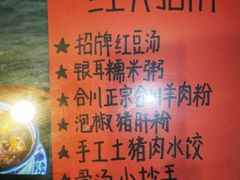 ★招牌红豆汤
★银耳糯米粥
★合川正宗合川羊肉粉
★泡椒猪肝粉
★手工土猪肉水饺